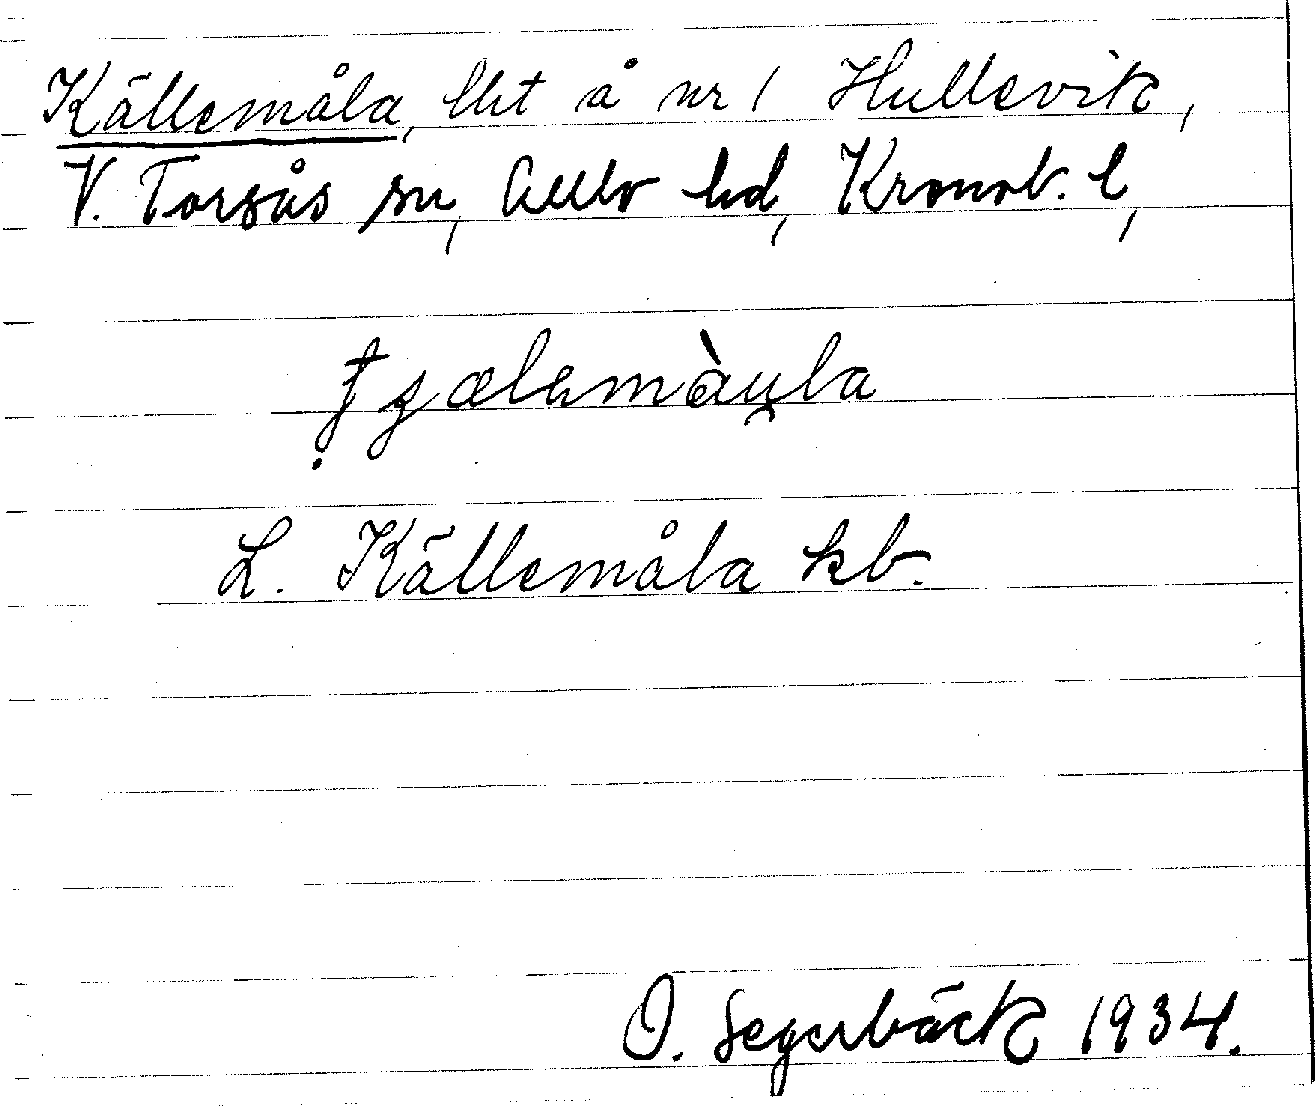 Källemåla, lht å nr 1 Hullevik,
V. Torsås sn, Allbo hd, Kronob. l,
L. Källemåla kb.
O. Segerbäck 1934.